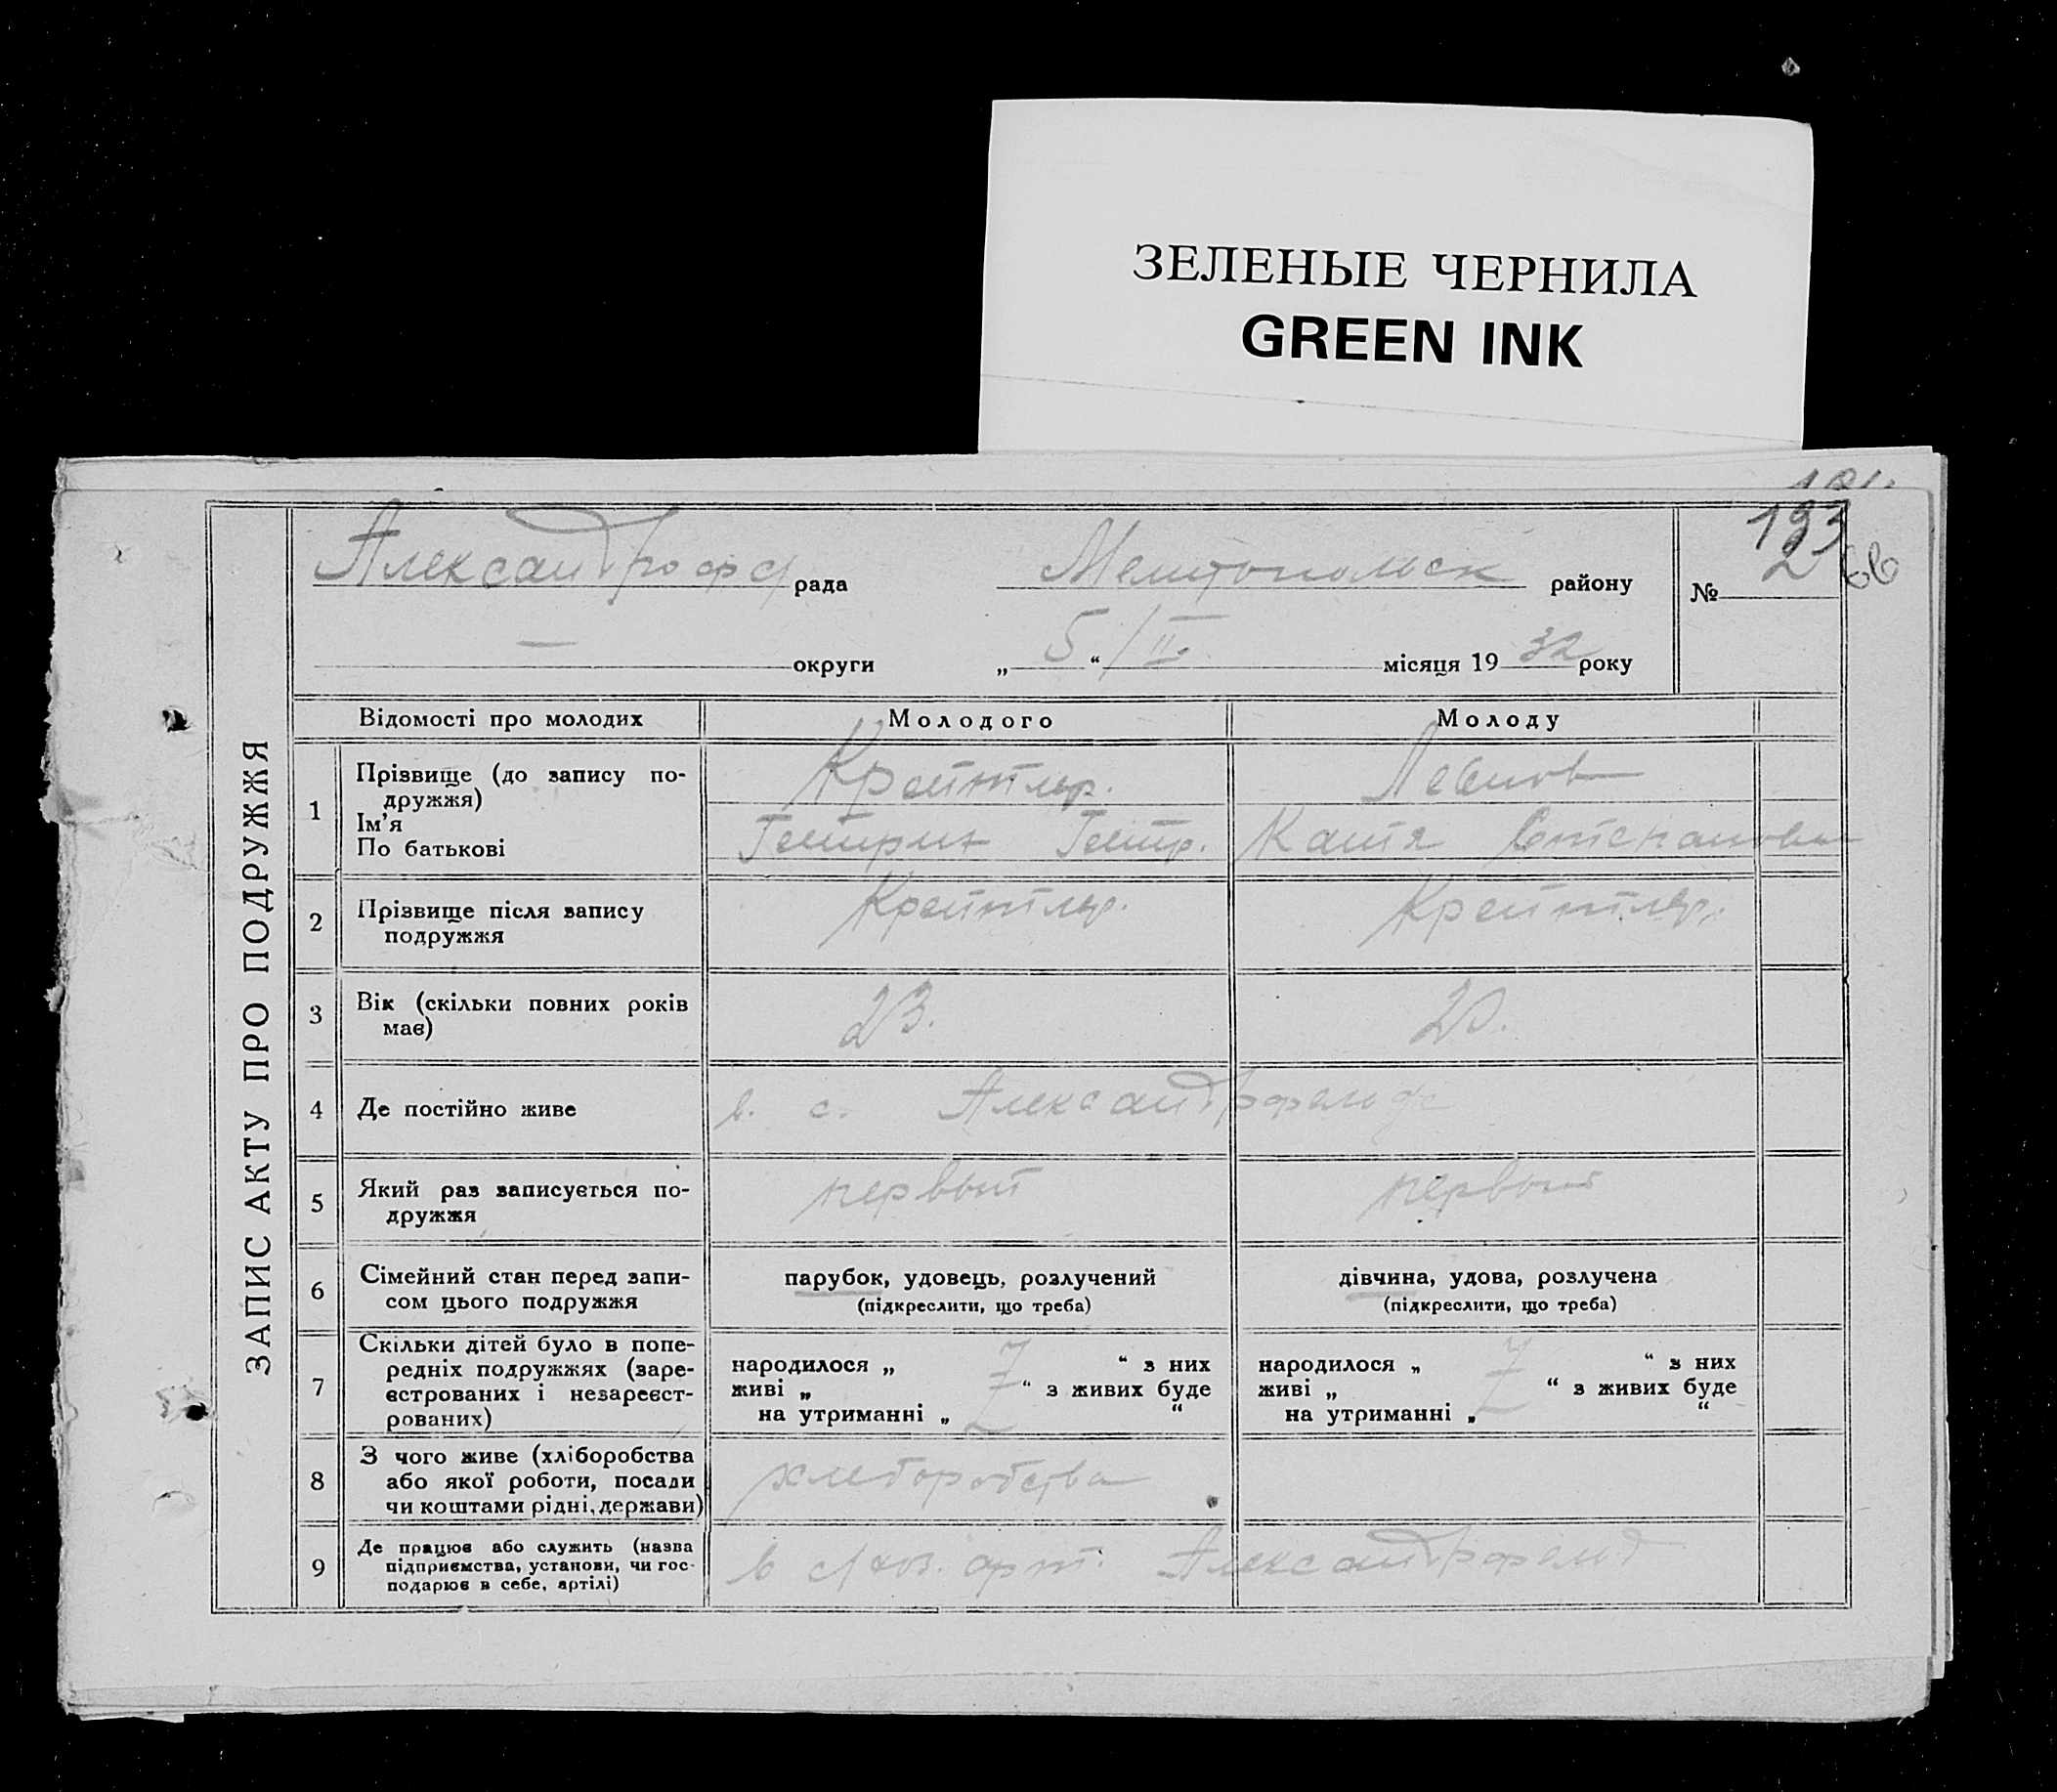 ЗЕЛЕНЫЕ ЧЕРНИЛА
GREEN INK
193
66
ЗАПИС АКТУ ПРО ПОДРУЖЖЯ
рада Мелитопольск району № 2
— округи „ 5 “ / II. місяця 19 32 року
Відомості про молодих Молодого Молоду
1 Прізвище (до запису по-
дружжя)
Ім'я
По батькові
Катя Степановна
2 Прізвище після запису
подружжя
3 Вік (скільки повних років
має)
23. 20.
4 Де постійно живе в. с. Александрфельд
5 Який раз записується по-
дружжя
первый первый
6 Сімейний стан перед запи-
сом цього подружжя
парубок, удовець, розлучений
(підкреслити, що треба)
дівчина, удова, розлучена
(підкреслити, що треба)
7 Скільки дітей було в попе-
редніх подружжях (заре-
єстрованих і незареєст-
рованих)
народилося „ “ з них
живі „ “ з живих буде
на утриманні „ “
народилося „ “ з них
живі „ “ з живих буде
на утриманні „ “
8 З чого живе (хліборобства
або якої роботи, посади
чи коштами рідні, держави)
хлеборобства
9 Де працює або служить (назва
підприємства, установи, чи гос-
подарює в себе, артілі)
в с/хоз. арт. Александрфельд